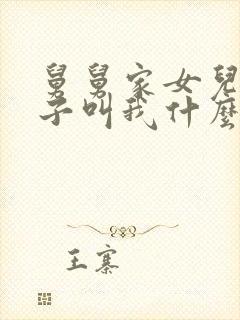 舅舅家女兒
子叫我什麼
王寨